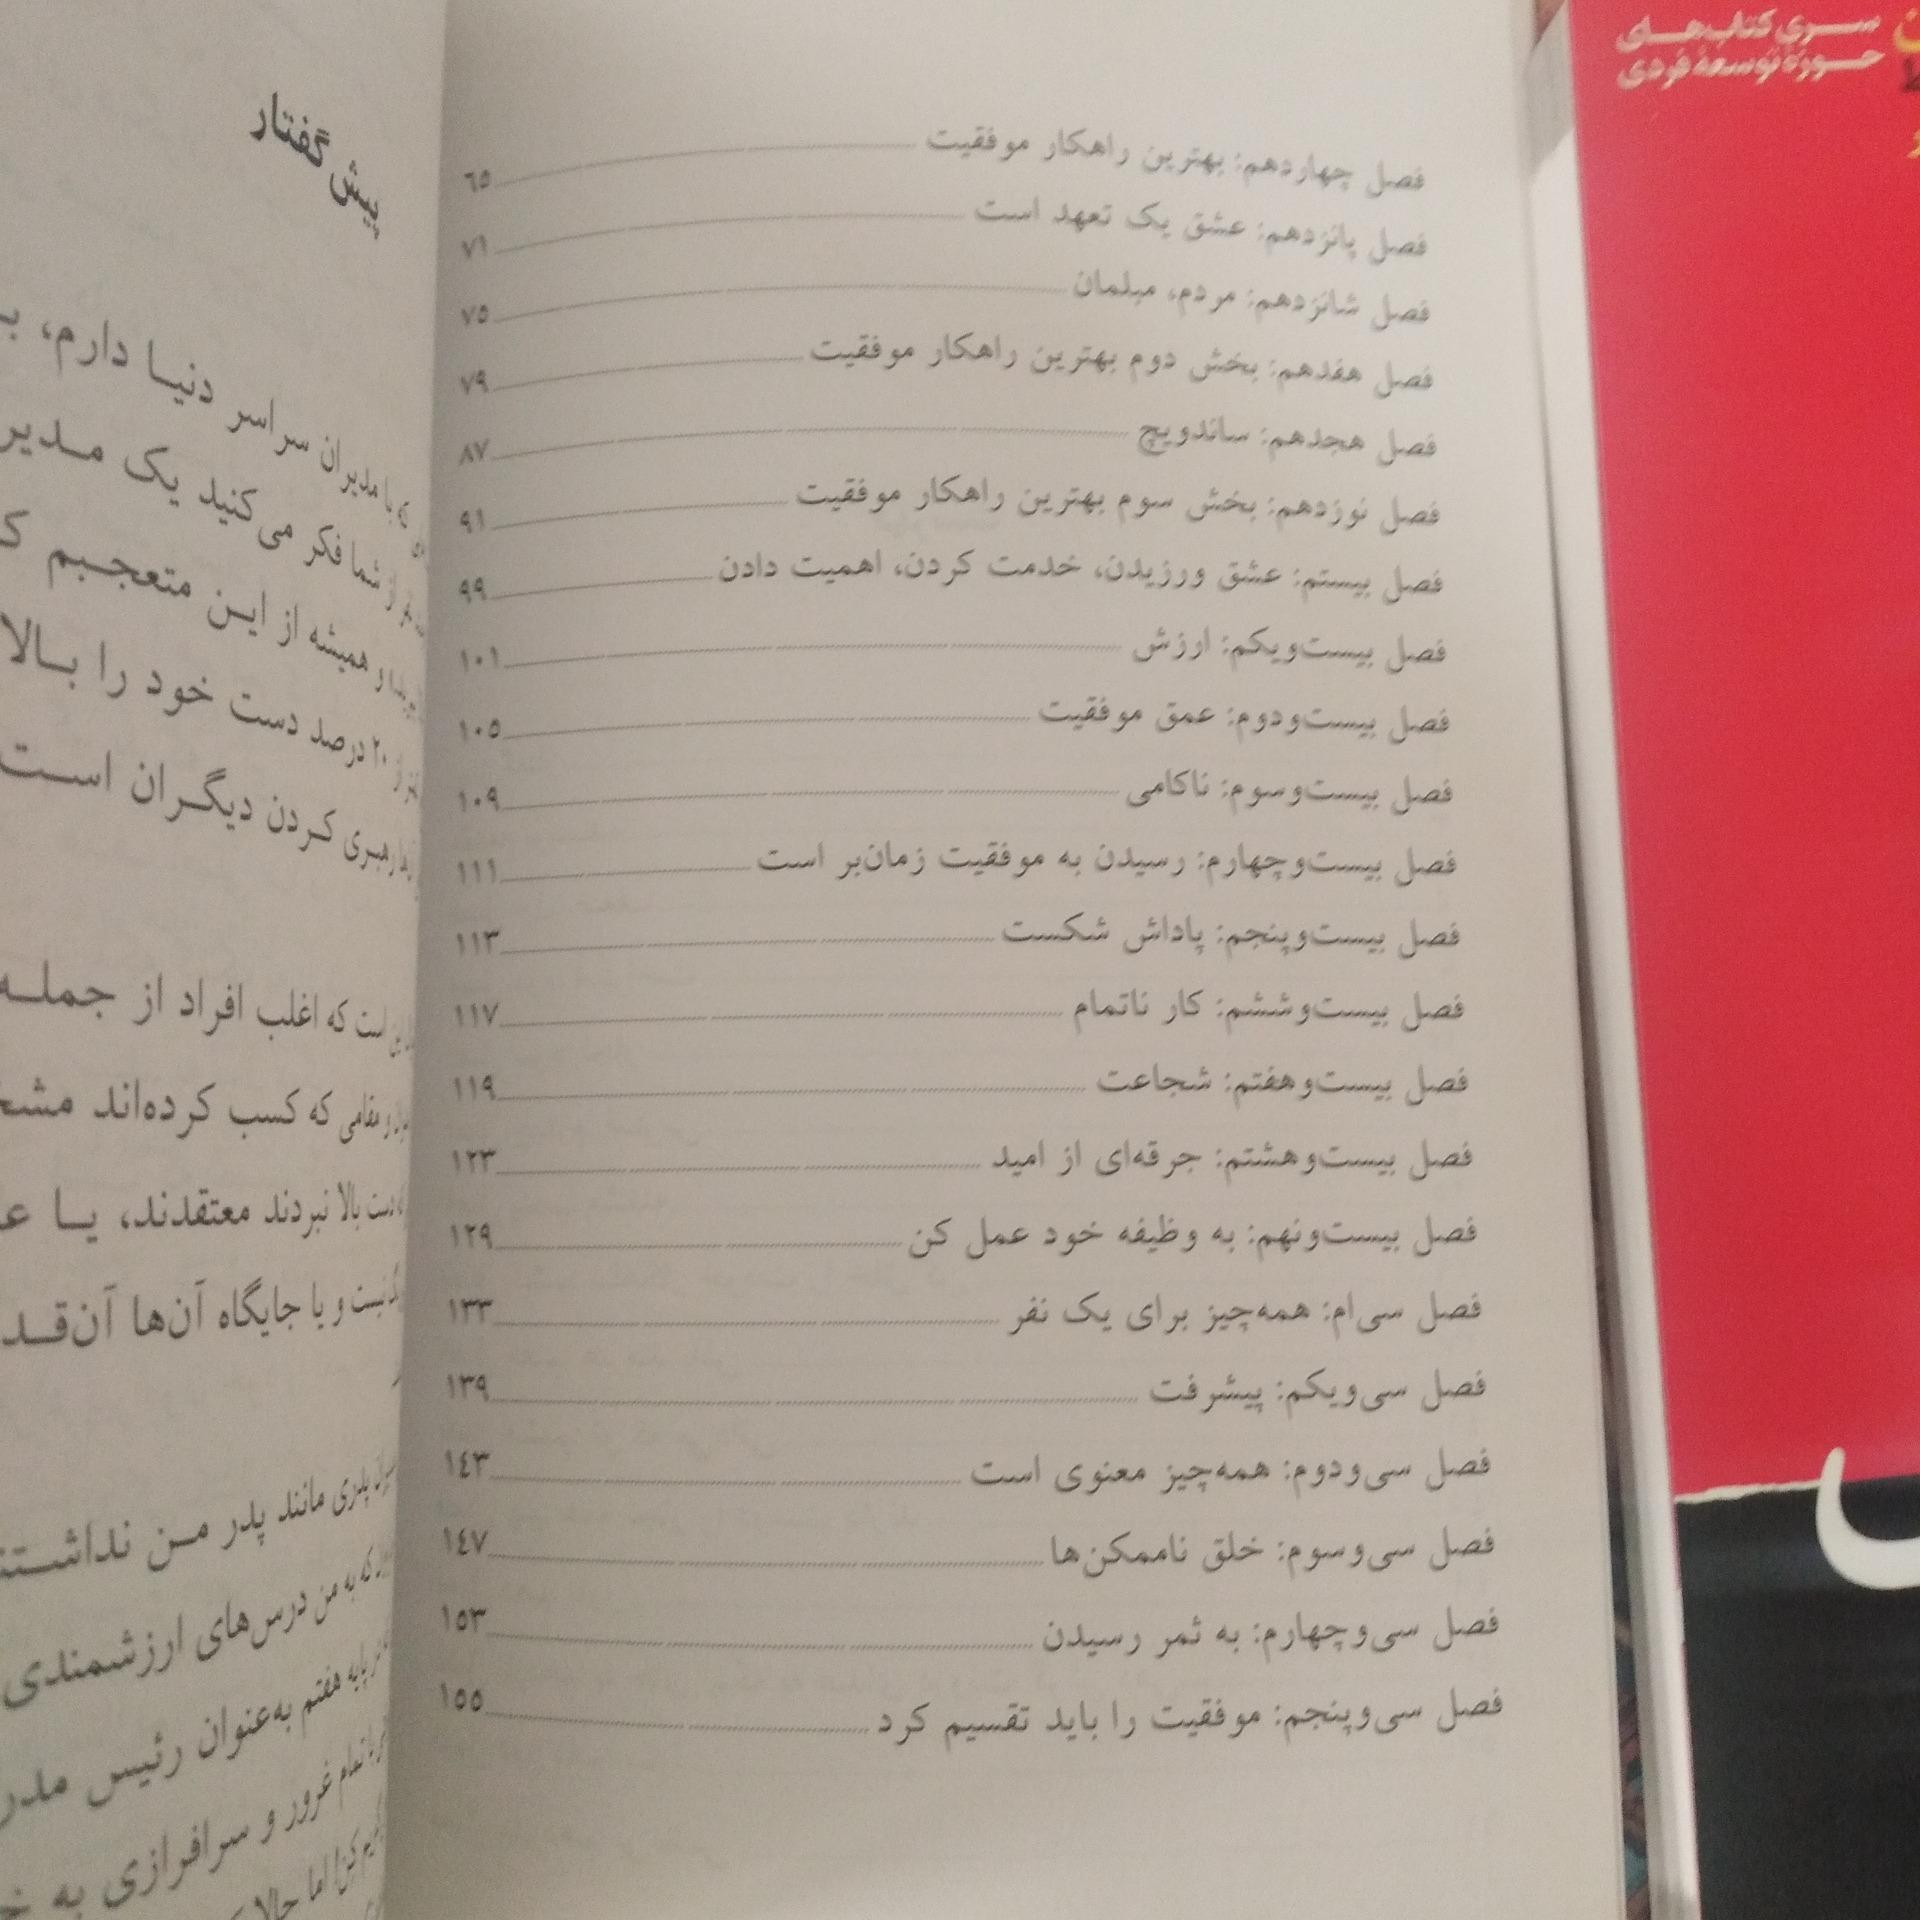 سری کتاب‌های
حوزهٔ توسعهٔ فردی
فصل چهاردهم: بهترین راهکار موفقیت ٦٥
فصل پانزدهم: عشق یک تعهد است ٧١
فصل شانزدهم: مردم، مبلمان ٧٥
فصل هفدهم: بخش دوم بهترین راهکار موفقیت ٧٩
فصل هجدهم: ساندویچ ٨٧
فصل نوزدهم: بخش سوم بهترین راهکار موفقیت ٩١
فصل بیستم: عشق ورزیدن، خدمت کردن، اهمیت دادن ٩٩
فصل بیست‌ویکم: ارزش ١٠١
فصل بیست‌ودوم: عمق موفقیت ١٠٥
فصل بیست‌وسوم: ناکامی ١٠٩
فصل بیست‌وچهارم: رسیدن به موفقیت زمان‌بر است ١١١
فصل بیست‌وپنجم: پاداش شکست ١١٣
فصل بیست‌وششم: کار ناتمام ١١٧
فصل بیست‌وهفتم: شجاعت ١١٩
فصل بیست‌وهشتم: جرقه‌ای از امید ١٢٣
فصل بیست‌ونهم: به وظیفه خود عمل کن ١٢٩
فصل سی‌ام: همه‌چیز برای یک نفر ١٣٣
فصل سی‌ویکم: پیشرفت ١٣٩
فصل سی‌ودوم: همه‌چیز معنوی است ١٤٣
فصل سی‌وسوم: خلق ناممکن‌ها ١٤٧
فصل سی‌وچهارم: به ثمر رسیدن ١٥٣
فصل سی‌وپنجم: موفقیت را باید تقسیم کرد ١٥٥
پیش گفتار
با مدیران سراسر دنیا دارم،
از شما فکر می‌کنید یک مدیر
و همیشه از این متعجبم
از ٢٠ درصد دست خود را بالا
رهبری کردن دیگران است
است که اغلب افراد از جمله
و مقامی که کسب کرده‌اند
دست بالا نبردند معتقدند، یا
نیست و یا جایگاه آن‌ها
پدری مانند پدر من
که به من درس‌های ارزشمندی
پایه هفتم به‌عنوان رئیس
با تمام غرور و سرافرازی به
اما حالا